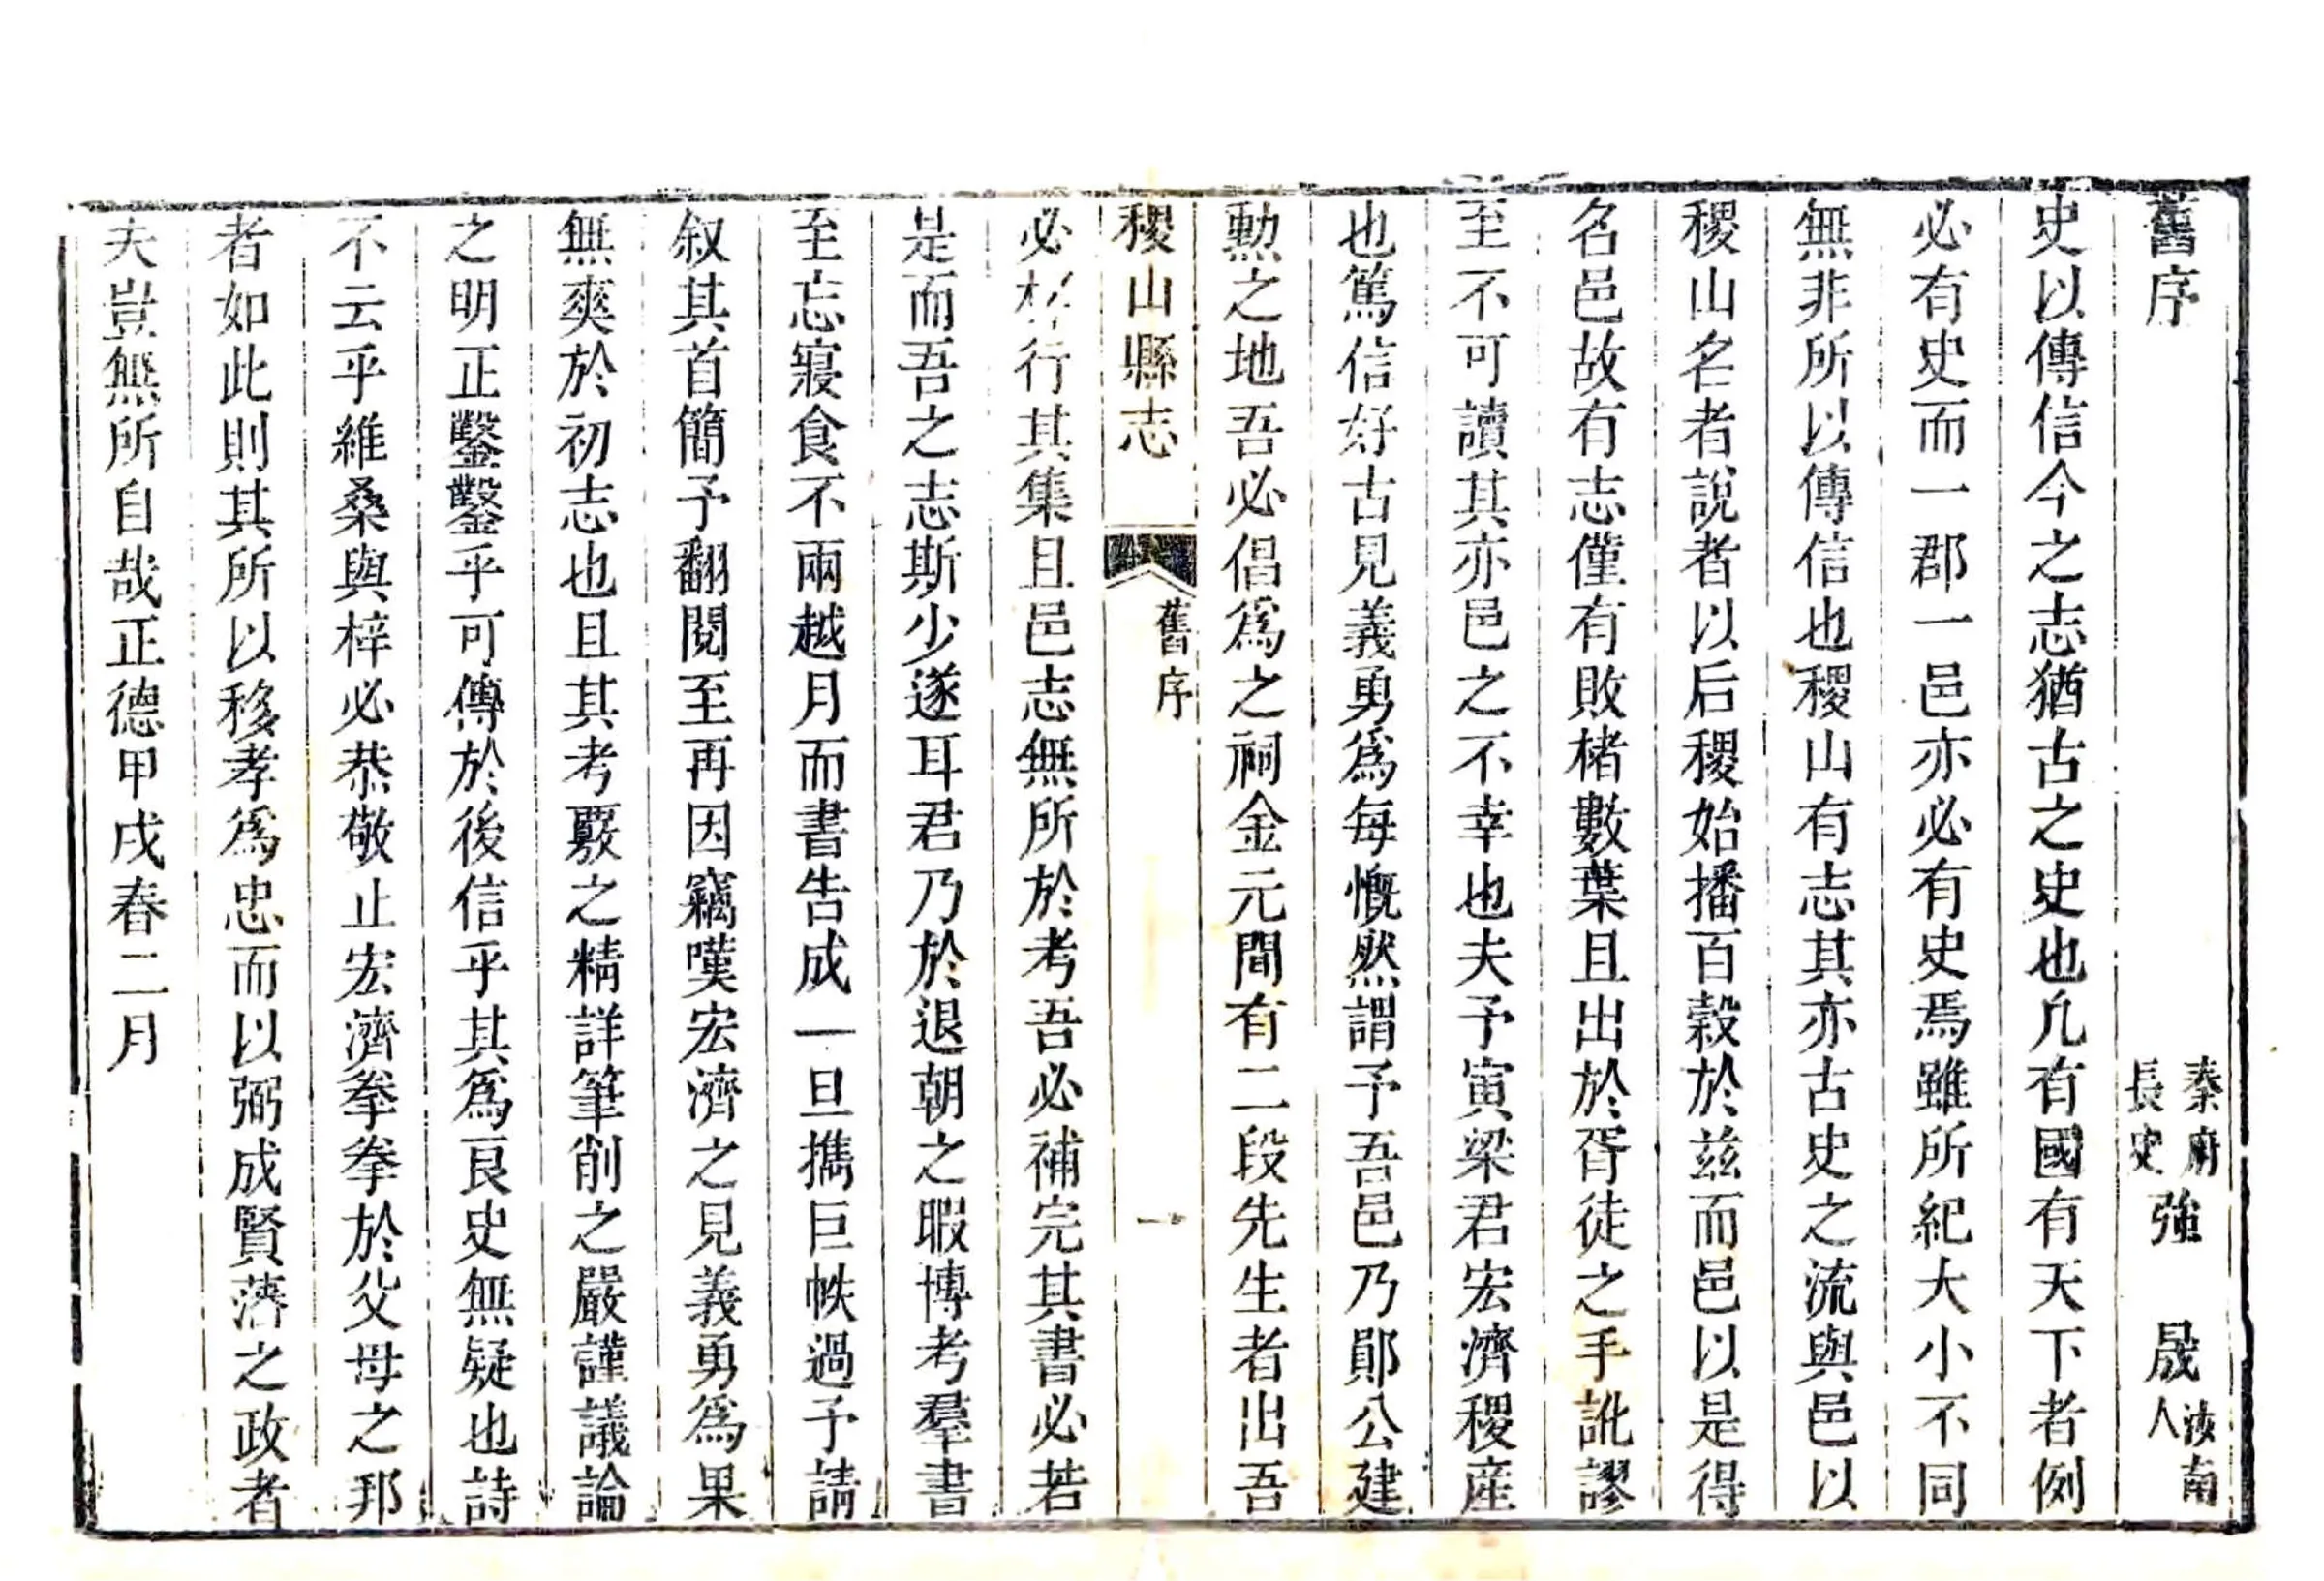 舊序 秦府長史 強 晟 汝南人
史以傳信今之志猶古之史也凡有國有天下者例
必有史而一郡一邑亦必有史焉雖所紀大小不同
無非所以傳信也稷山有志其亦古史之流與邑以
稷山名者說者以后稷始播百穀於茲而邑以是得
名邑故有志僅有敗楮數葉且出於胥徒之手訛謬
至不可讀其亦邑之不幸也夫予寅梁君宏濟稷産
也篤信好古見義勇爲每慨然謂予吾邑乃鄖公建
勳之地吾必倡爲之祠金元間有二段先生者出吾
稷山縣志 舊序 一
必梓行其集且邑志無所於考吾必補完其書必若
是而吾之志斯少遂耳君乃於退朝之暇博考羣書
至忘寢食不兩越月而書告成一旦攜巨帙過予請
叙其首簡予翻閱至再因竊嘆宏濟之見義勇爲果
無爽於初志也且其考覈之精詳筆削之嚴謹議論
之明正鑿鑿乎可傳於後信乎其爲良史無疑也詩
不云乎維桑與梓必恭敬止宏濟拳拳於父母之邦
者如此則其所以移孝爲忠而以弼成賢藩之政者
夫豈無所自哉正德甲戌春二月